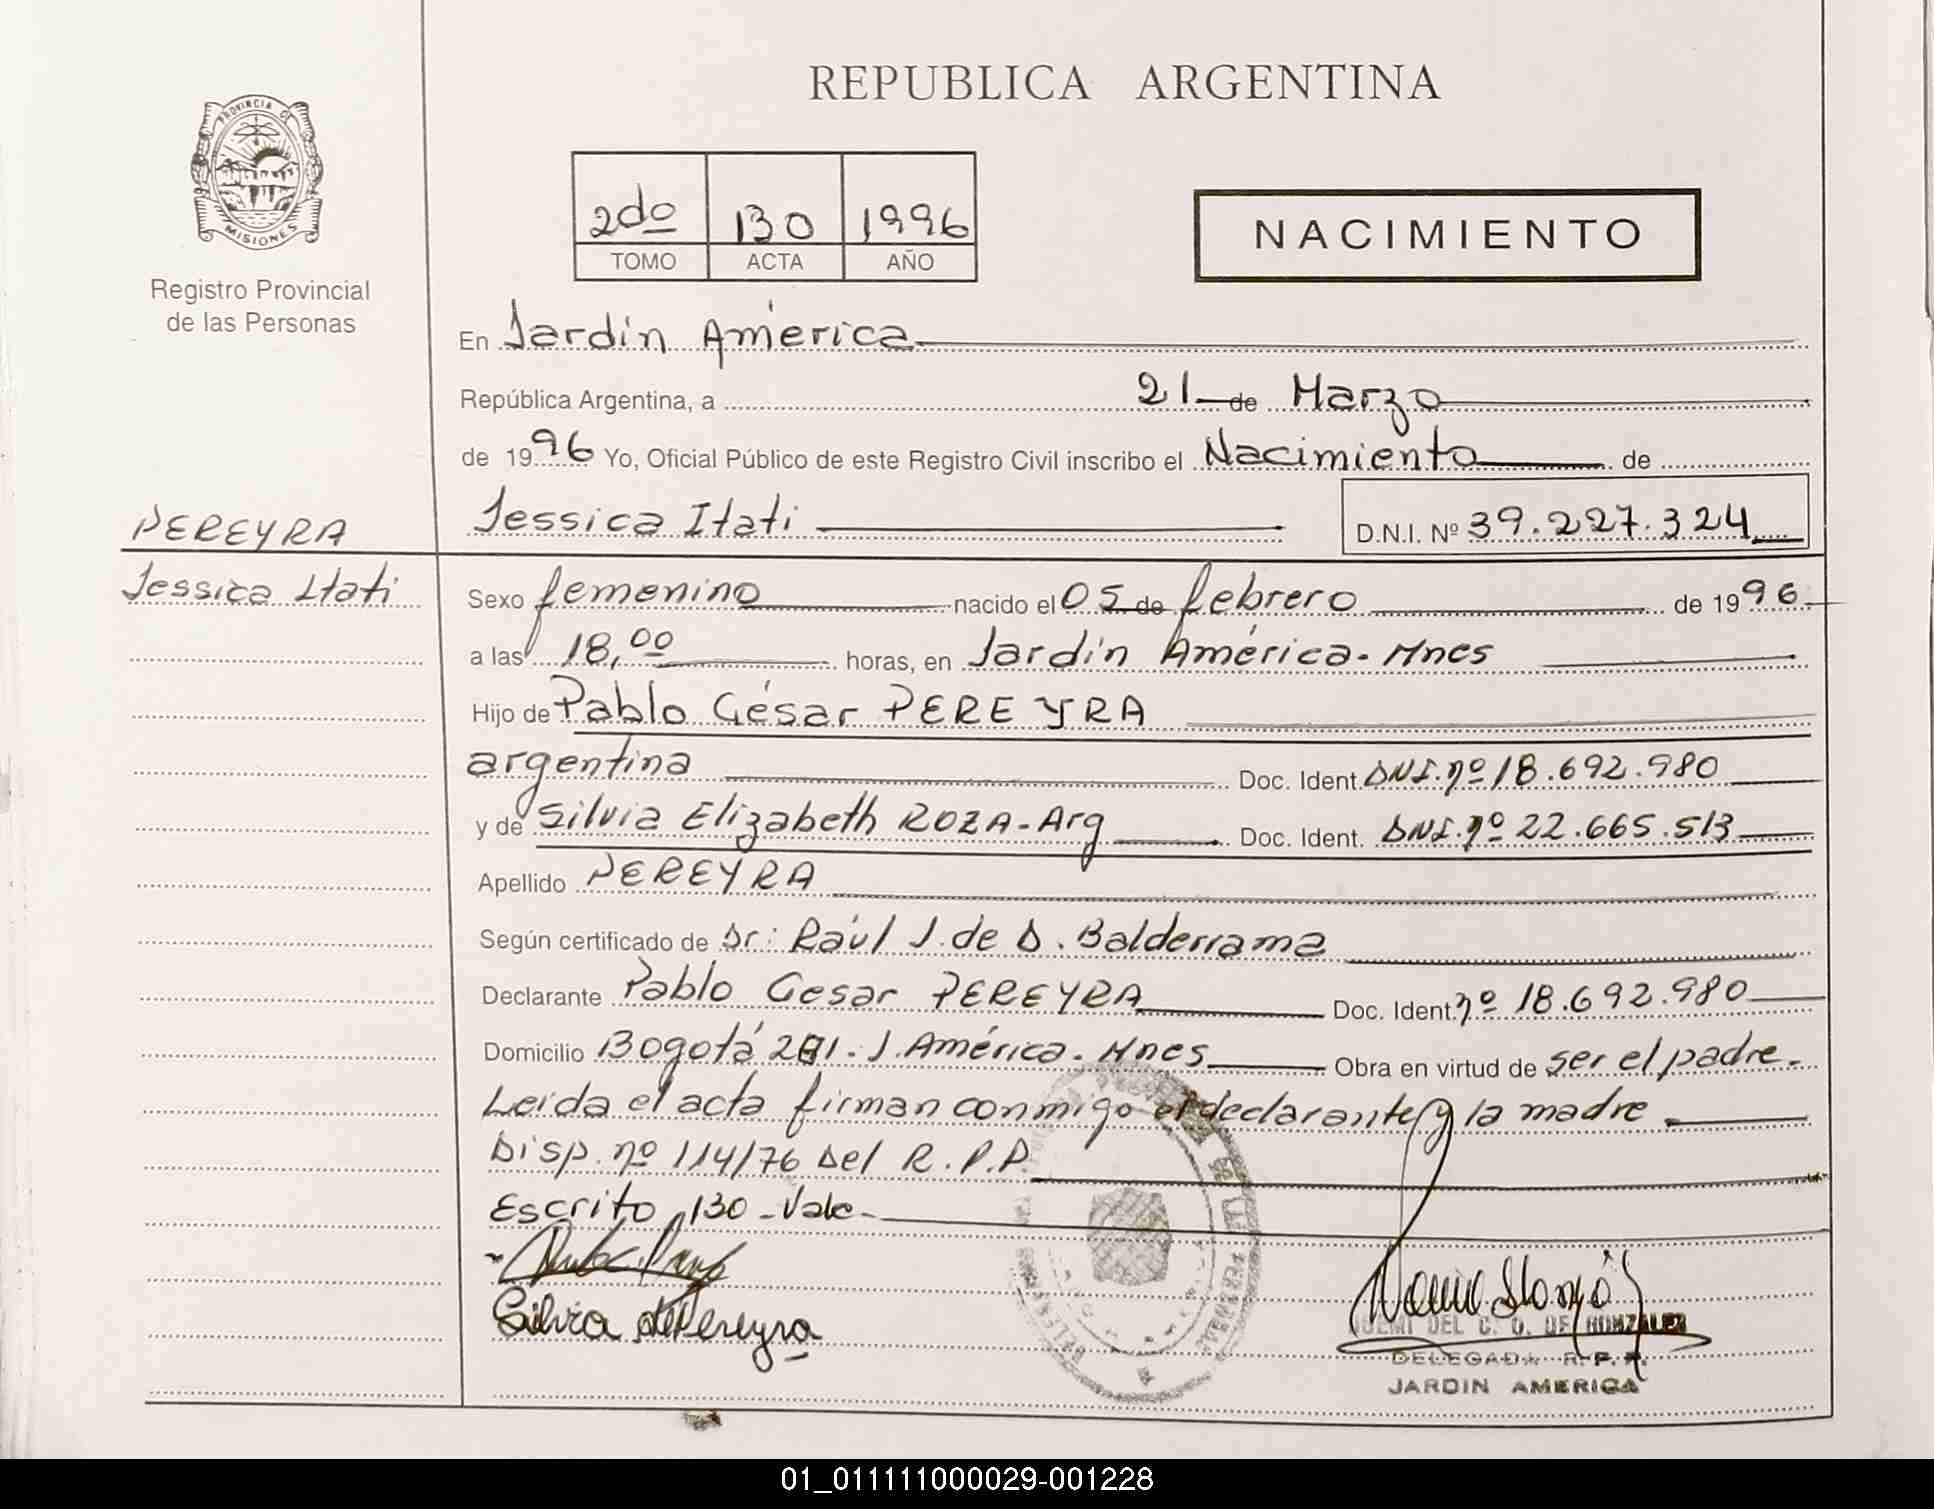 REPUBLICA ARGENTINA
PROVINCIA DE
MISIONES
Registro Provincial
de las Personas
2do 130 1996
TOMO ACTA AÑO
NACIMIENTO
En Jardín América
República Argentina, a 21 de Marzo
de 1996 Yo, Oficial Público de este Registro Civil inscribo el Nacimiento de
PEREYRA
Jessica Itati
Jessica Itati D.N.I. Nº 39.227.324
Sexo femenino nacido el 05 de febrero de 1996
a las 18,00 horas, en Jardín América-Mnes
Hijo de Pablo César PEREYRA
argentina Doc. Ident. DNI. nº 18.692.980
y de Silvia Elizabeth ROZA-Arg Doc. Ident. DNI. nº 22.665.513
Apellido PEREYRA
Según certificado de Dr: Raúl J. de D. Balderrama
Declarante Pablo Cesar PEREYRA Doc. Ident. nº 18.692.980
Domicilio Bogotá 201. J. América. Mnes Obra en virtud de ser el padre.
Leida el acta firman conmigo el declarante y la madre
Disp. nº 114/76 Del R.P.P.
Escrito 130 - Vale -
Silvia de Pereyra
NOEMI DEL C. O. DE GONZALEZ
DELEGADA R.P.P.
JARDIN AMERICA
01_011111000029-001228